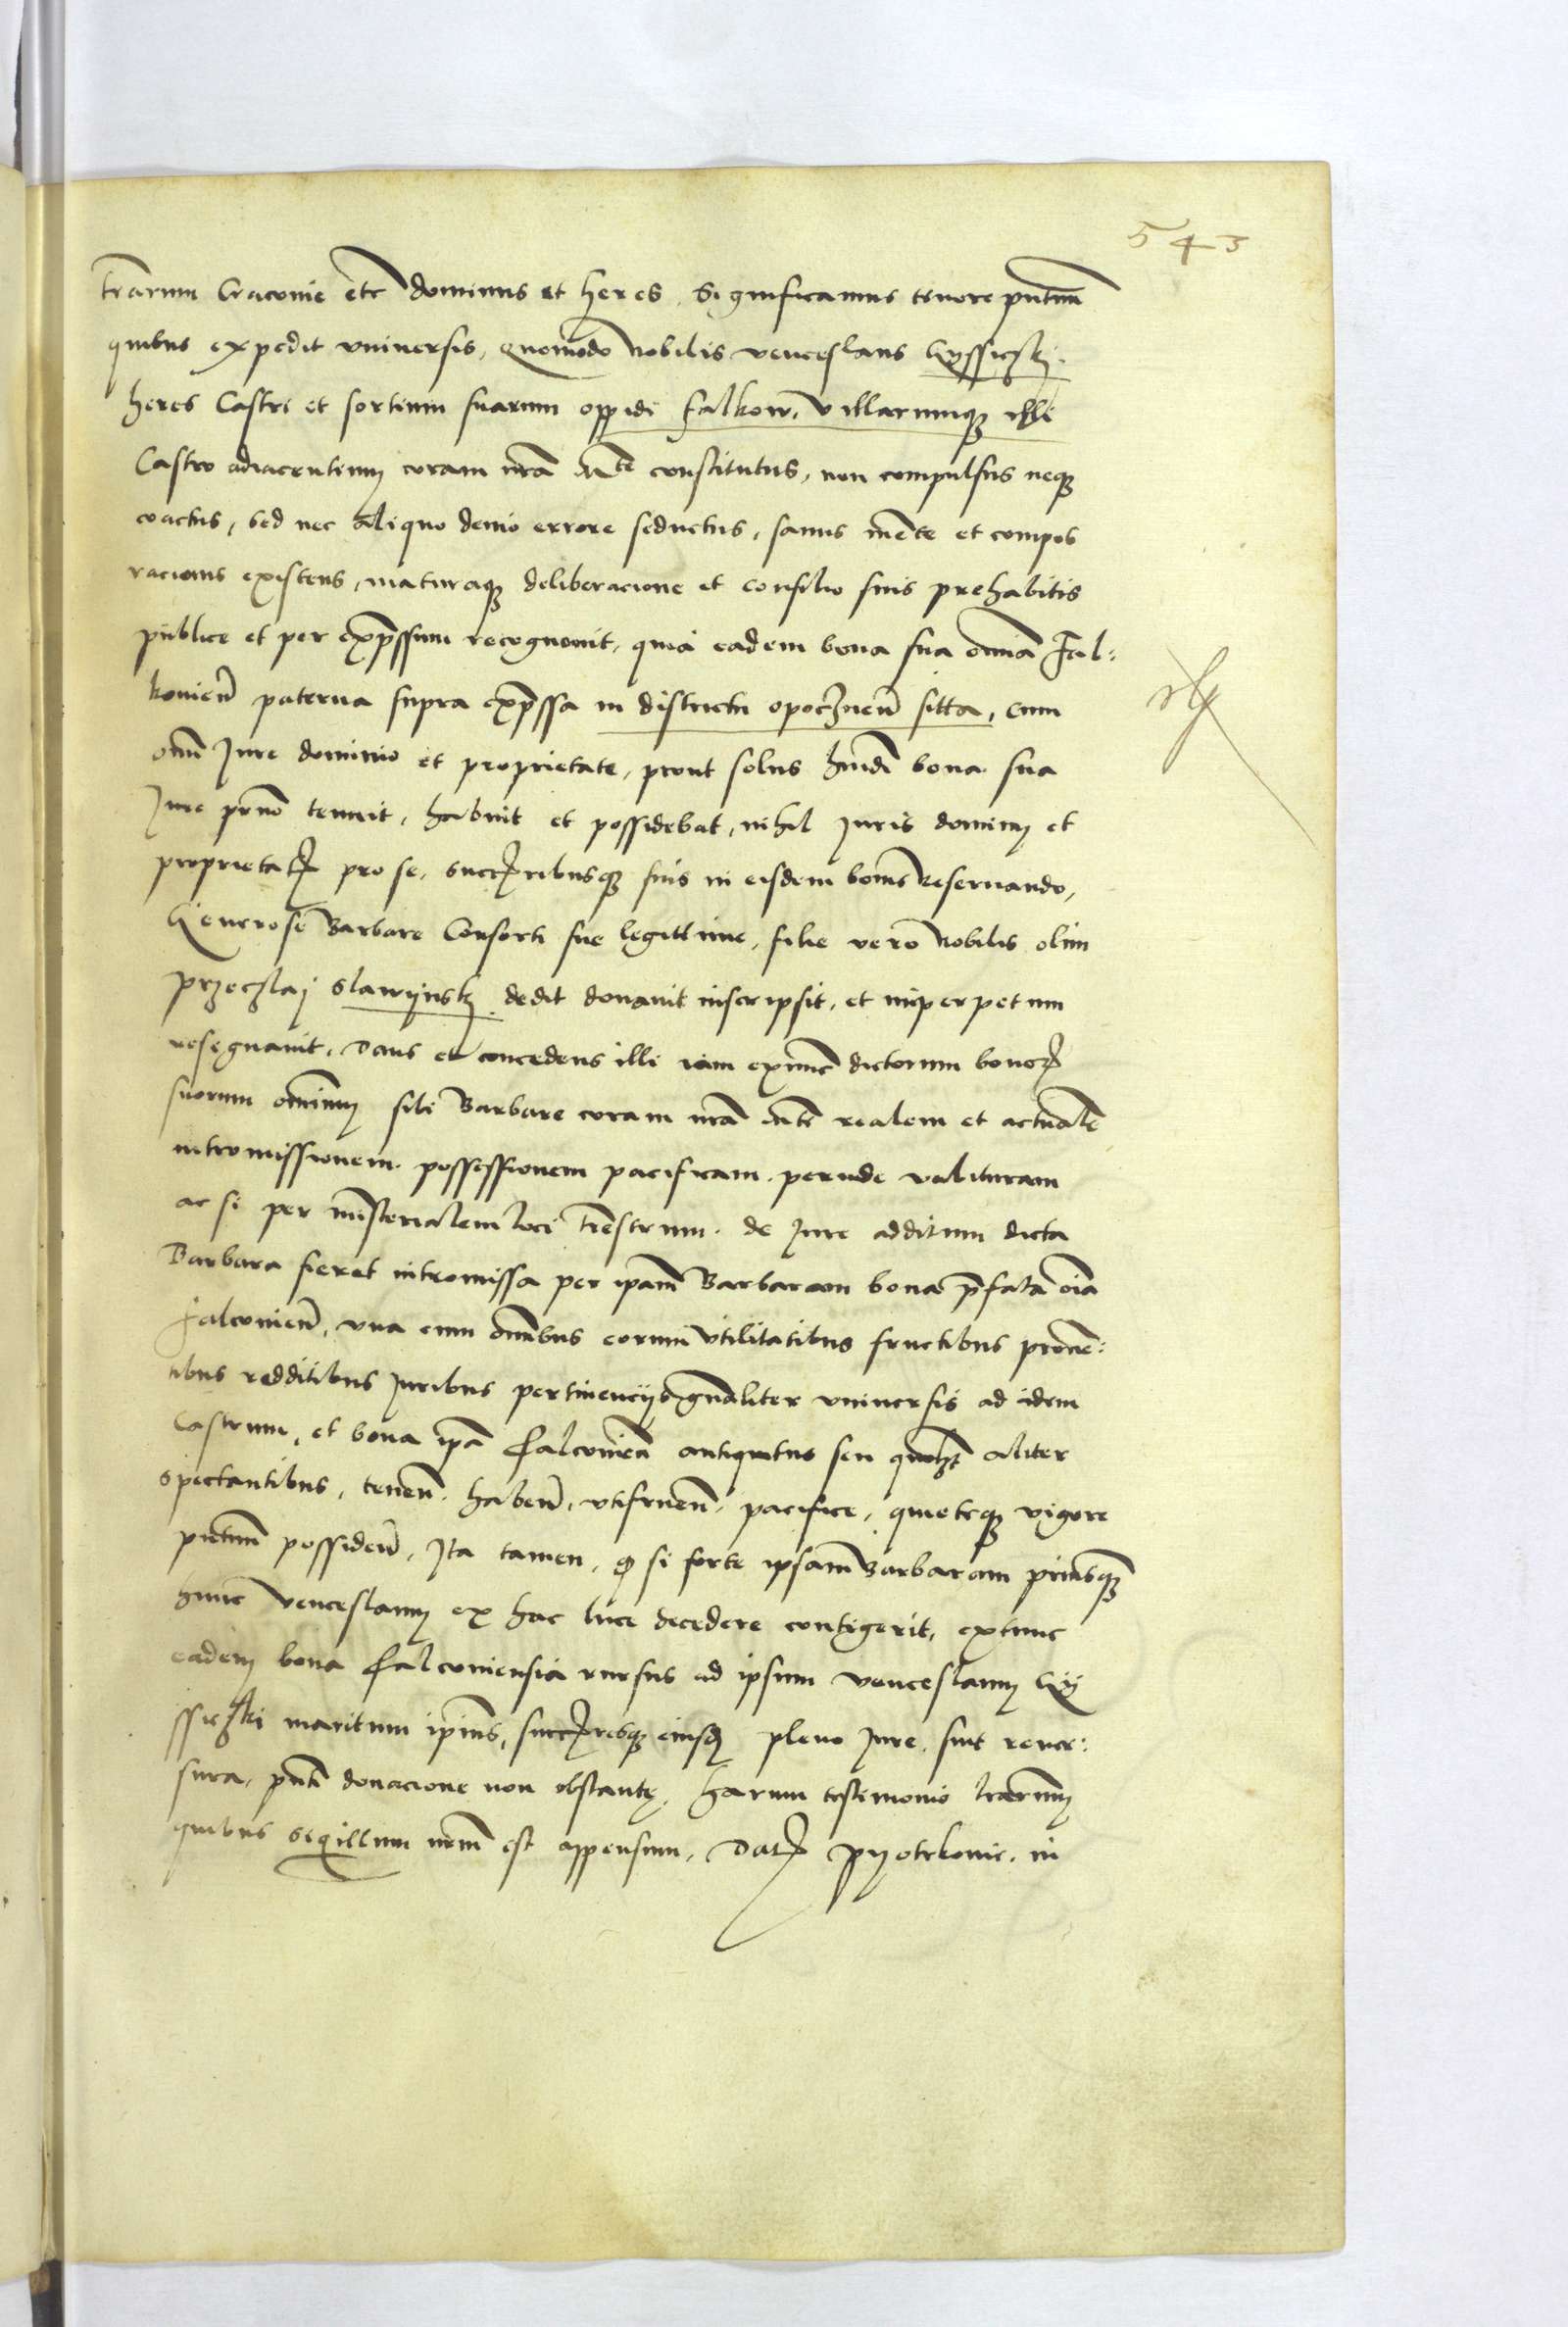 543
trarum Cracovie etc dominus et heres. Significamus tenore pntium
quibus expedit universis, quomodo nobilis venceslaus
heres Castri et sortium suarum oppidi falkow, villarumque illi
Castro adiacentium coram nra Mte constitutus, non compulsus neque
coactus, sed nec aliquo devio errore seductus, sanus mente et compos
racionis existens, maturaque deliberacione et consilio suis prehabitis
publice et per expssum recognovit, quia eadem bona sua omnia Fal:
kovien paterna supra expssa in districtu opocznen sitta, cum
omi Jure dominio et proprietate, prout solus hmdi bona sua
Jure prno tenuit, habuit et possidebat, nihil juris dominij et
proprietatis pro se, succribusque suis in eisdem bonis reservando,
Generose Barbare Consorti sue legittime, filie vero nobilis olim
przeczlaj slawijnskj dedit donavit inscripsit, et inperpetuum
resegnavit, Dans et concedens illi iam exnunc dictorum bonor
suorum omnium sibi Barbare coram nra Mte realem et actuale
intromissionem possessionem pacificam perinde valituram
ac si per misterialem loci trestrum de Jure additum dicta
Barbara fieret intromissa per ipam Barbaram bona pfata oia
falconien, una cum omibus eorum utilitatibus fructibus proven:
tibus redditibus juribus pertinencijs gnaliter universis ad idem
Castrum, et bona ipa falconien antiquitus seu quolzt aliter
spectantibus, tenen haben, utifruen pacifice, quieteque vigore
pntium possiden, Ita tamen, q si forte ipsam Barbaram priusquam
hunc venceslaum ex hac luce decedere contigerit, extunc
eadem bona falconiensia rursus ad ipsum venceslaum
maritum ipius, succresque eiusdem pleno Jure sint rever:
sura, pnti donacione non obstante, harum testimonio lrarum
quibus sigillum nrm est appensum, Dat pijotrkovie in